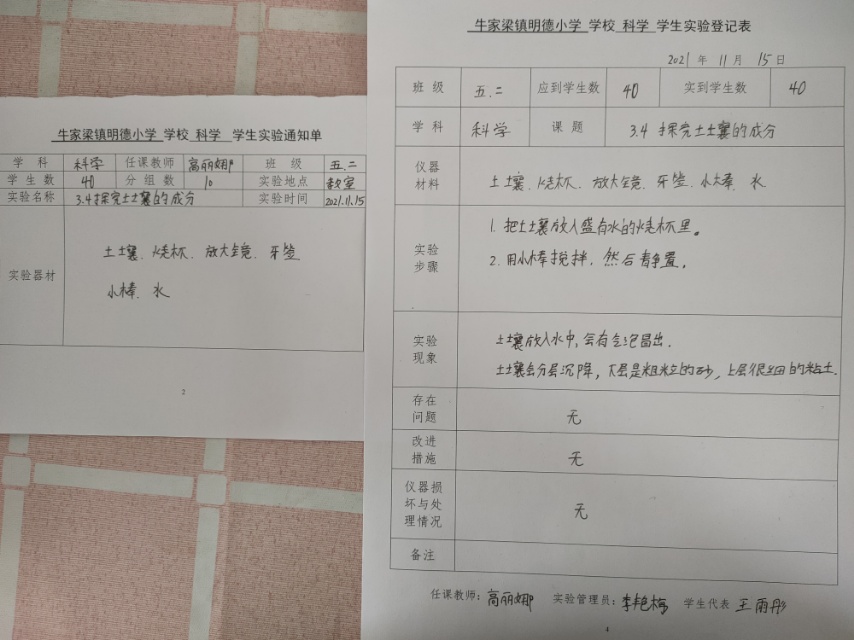 牛家梁镇明德小学 学校 科学 学生实验通知单
学科 科学 任课教师 高丽娜 班级 五.二
学生数 40 分组数 10 实验地点 教室
实验名称 3.4探究土壤的成分 实验时间 2021.11.15
实验器材
土壤、烧杯、放大镜、牙签
小棒、水
2
牛家梁镇明德小学 学校 科学 学生实验登记表
2021年 11月 15日
班级 五.二 应到学生数 40 实到学生数 40
学科 科学 课题 3.4 探究土壤的成分
仪器材料 土壤、烧杯、放大镜、牙签、小棒、水
实验步骤
1.把土壤放入盛有水的烧杯里。
2.用小棒搅拌,然后静置。
实验现象
土壤放入水中,会有气泡冒出.
土壤会分层沉降,下层是粗粒的砂,上层很细的粘土.
存在问题 无
改进措施 无
仪器损坏与处理情况 无
备注
任课教师:高丽娜 实验管理员:李艳梅 学生代表 王雨彤